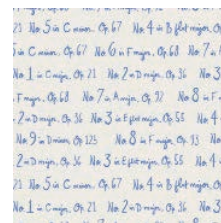 21 No. 5 in C minor, Op. 67 No. 4 in B flat major, O
5 in C minor, Op. 67 No. 6 in F major, Op. 68 No. 7 in
No. 1 in C major, Op. 21 No. 2 in D major, Op. 36 No. 3
F major, Op. 68 No. 7 in A major, Op. 92 No. 8 in F
2 in D major, Op. 36 No. 3 in E flat major, Op. 55 No. 4
No. 9 in D minor, Op. 125 No. 8 in F major, Op. 93 No.
2 in D major, Op. 36 No. 3 in E flat major, Op. 55 No. 4
21 No. 5 in C minor, Op. 67 No. 4 in B flat major, O
No. 1 in C major, Op. 21 No. 2 in D major, Op. 36 No.